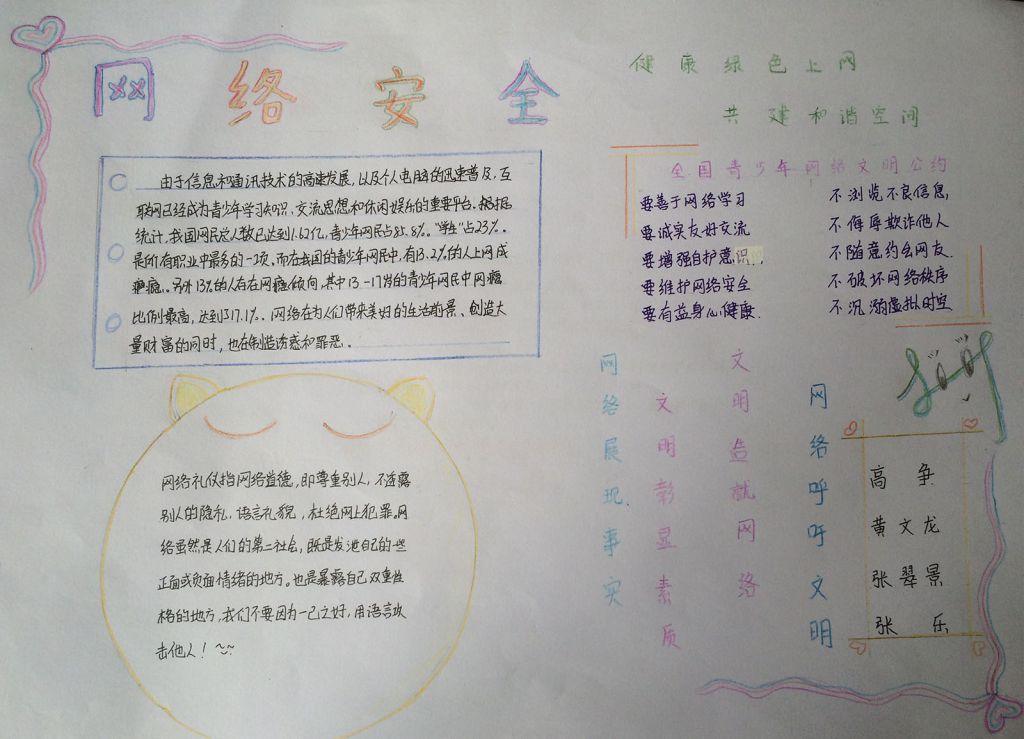 网络安全
健康绿色上网
共建和谐空间
由于信息和通讯技术的高速发展,以及个人电脑的迅速普及,互
联网已经成为青少年学习知识,交流思想和休闲娱乐的重要平台。根据
统计,我国网民总人数已达到1.62亿,青少年网民占85.8%。“学生”占23%。
是所有职业中最多的一项,而在我国的青少年网民中,有13.2%的人上网成
瘾。另外13%的人存在网瘾倾向,其中13-17岁的青少年网民中网瘾
比例最高,达到17.1%。网络在为人们带来美好的生活前景、创造大
量财富的同时,也在制造诱惑和罪恶。
全国青少年网络文明公约
要善于网络学习 不浏览不良信息,
要诚实友好交流 不侮辱欺诈他人
要增强自护意识, 不随意约会网友.
要维护网络安全 不破坏网络秩序
要有益身心健康. 不沉溺虚拟时空
网络礼仪指网络道德,即尊重别人,不透露
别人的隐私,语言礼貌,杜绝网上犯罪。网
络虽然是人们的第二社会,既是发泄自己的一些
正面或负面情绪的地方。也是暴露自己双重性
格的地方,我们不要因为一己之好,用语言攻
击他人!
网络展现事实
文明彰显素质
文明造就网络
网络呼吁文明
高争
黄文龙
张翠景
张乐